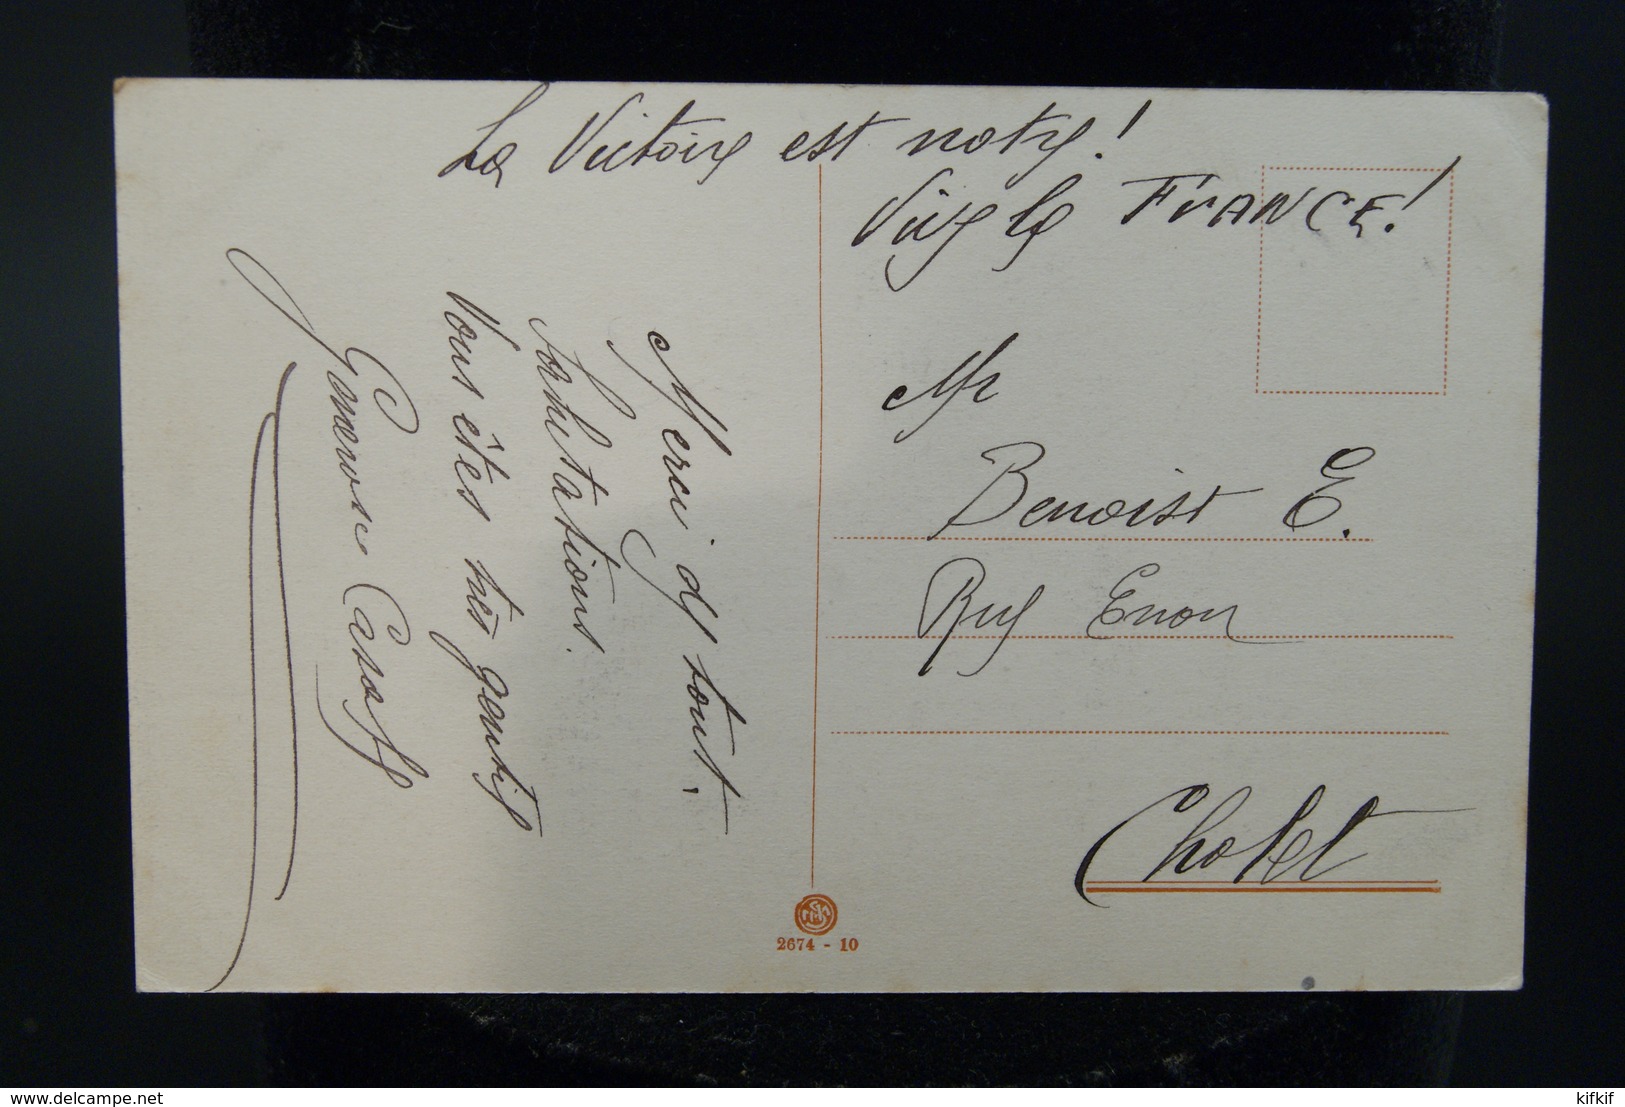 La Victoire est notre!
Vive la FrANCE!
Merci de tout.
Salutations.
Vous êtes très gentil
Mr
Benoist E.
Rue Enon
Cholet
2674 - 10
delcampe.net
kifkif